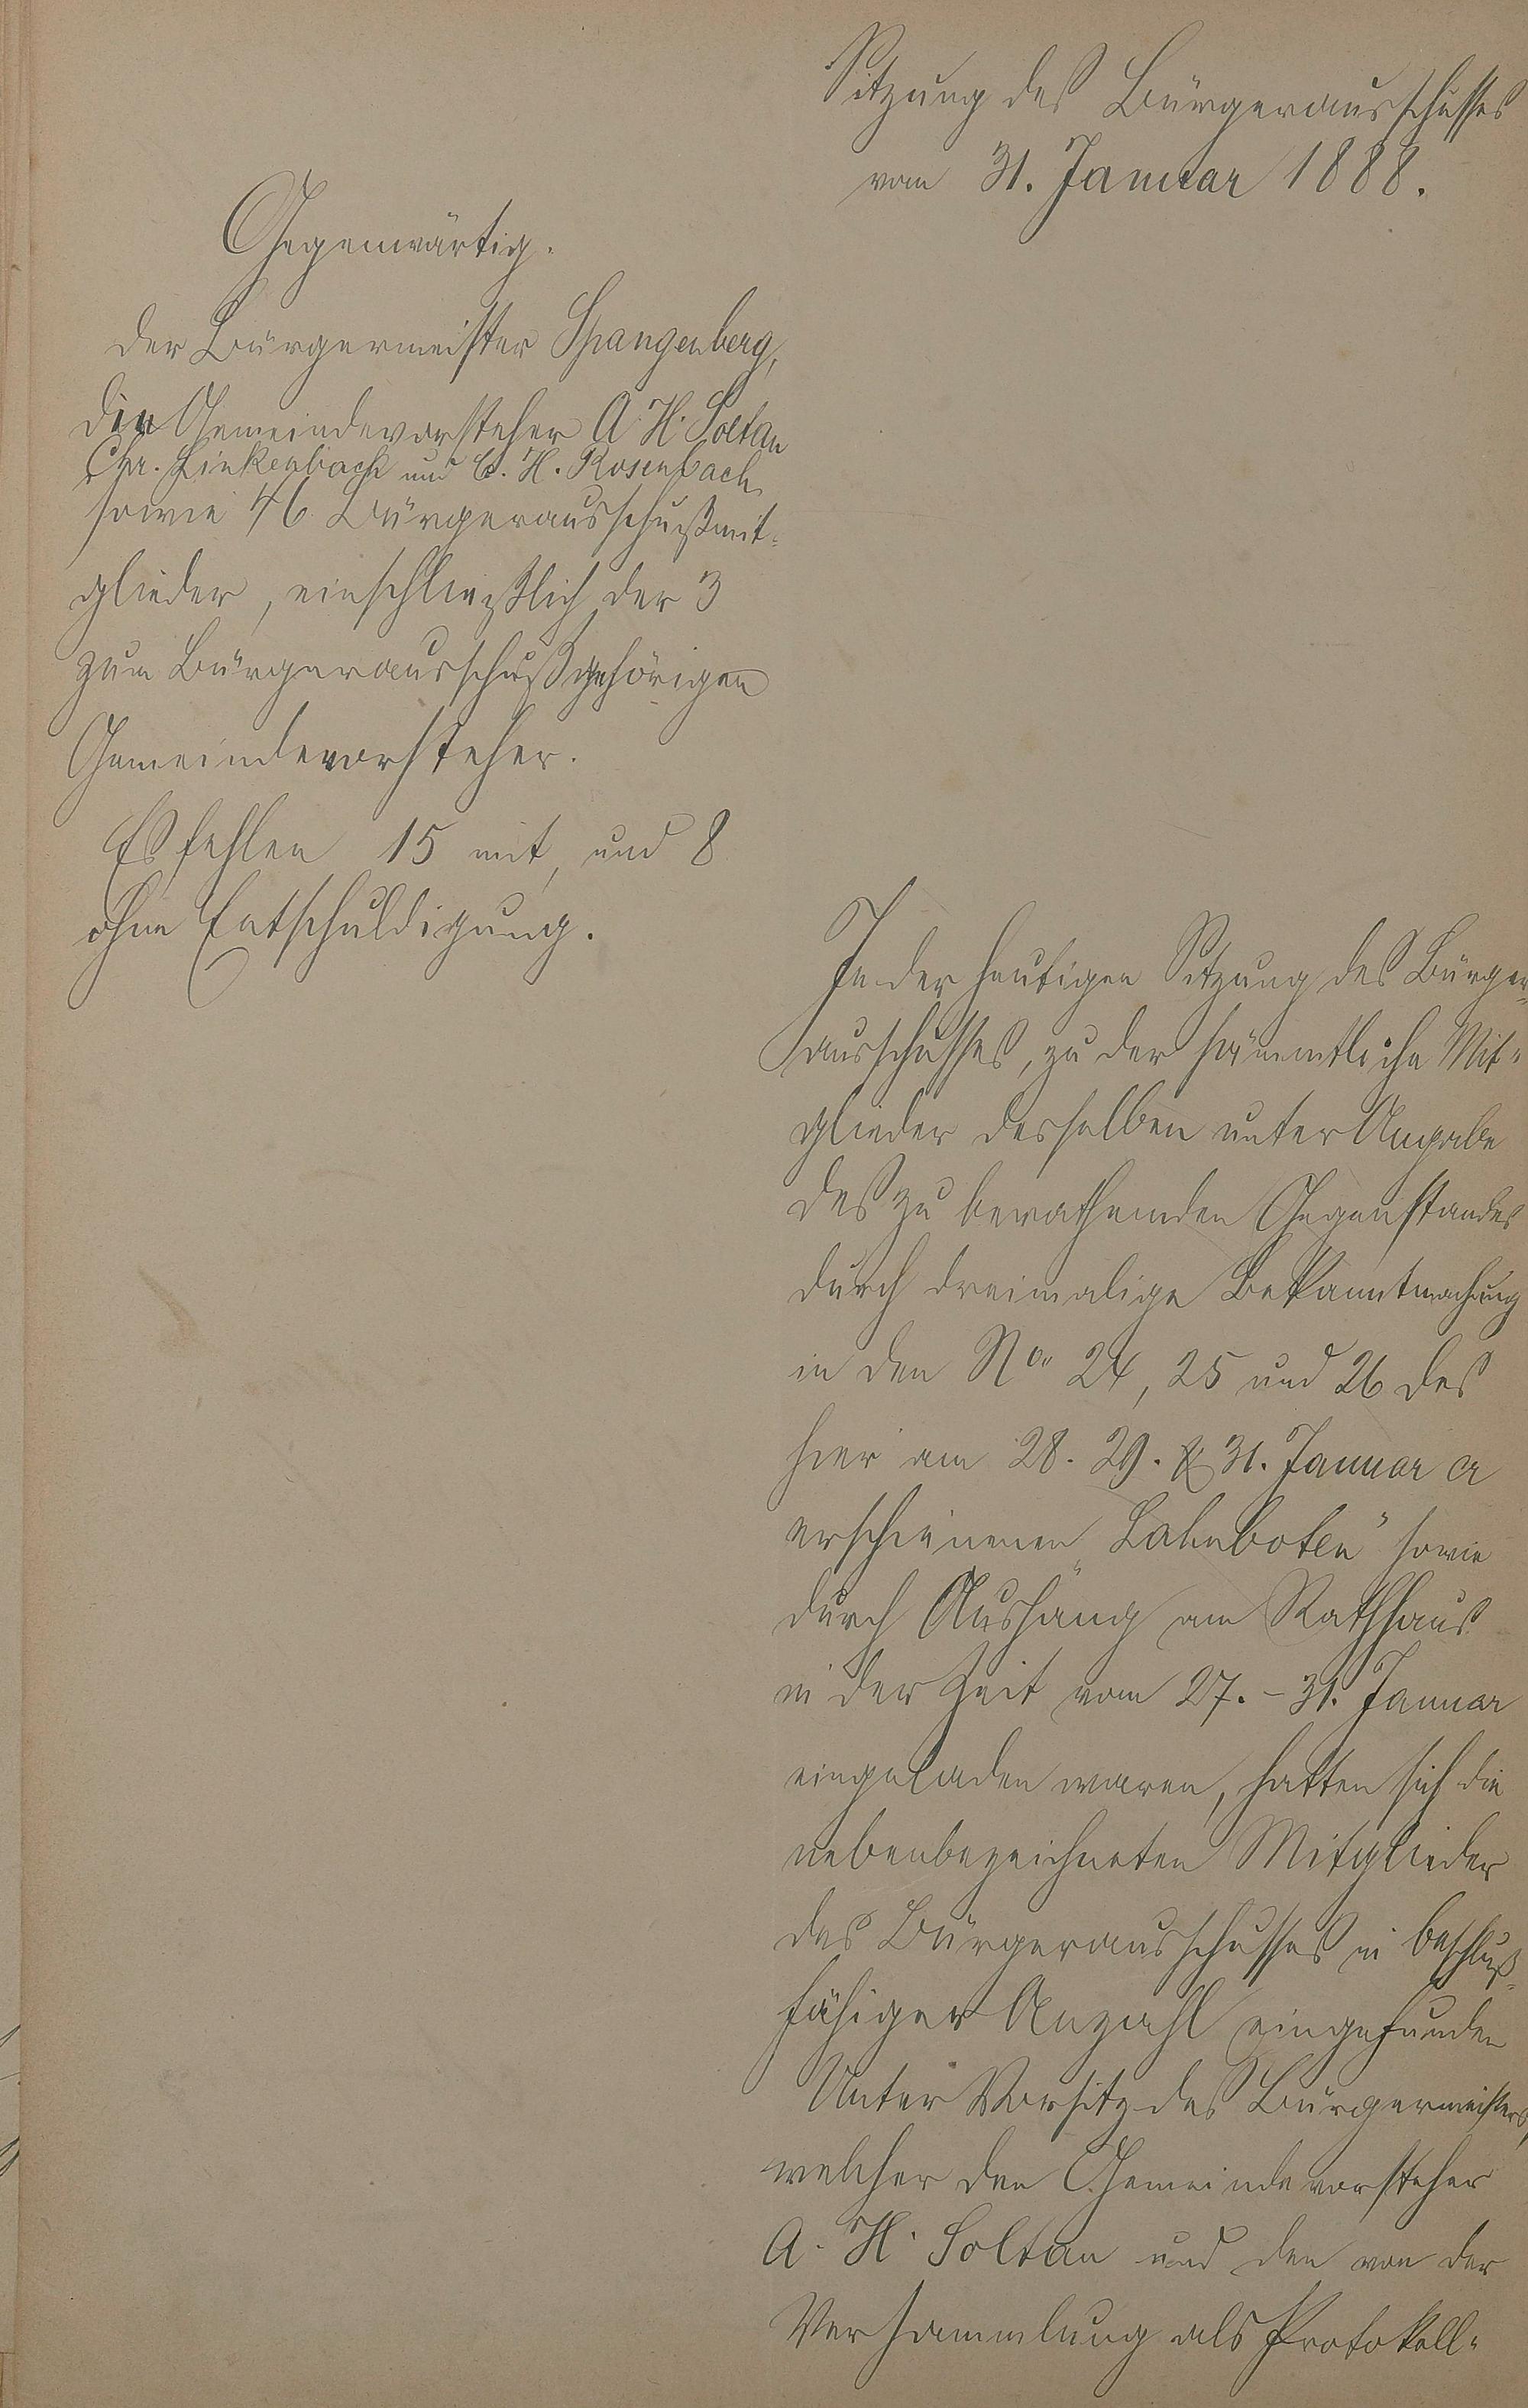 Sitzung des Bürgerausschusses
vom 31. Januar 1888.
Gegenwärtig.
der Bürgermeister Spangenberg,
die Gemeindevorsteher A. H. Soltau
Chr. Linkenbach und C. H. Rosenbach
sowie 46 Bürgerausschußmit-
glieder, einschließlich der 3
zum Bürgerausschuß gehörigen
Gemeindevorsteher.
Es fehlen 15 mit, und 8
ohne Entschuldigung.
In der heutigen Sitzung des Bürger-
ausschusses, zu der sämmtliche Mit-
glieder desselben unter Angabe
des zu berathenden Gegenstandes
durch dreimalige Bekanntmachung
in den No 24, 25 und 26 des
hier am 28. 29. & 31. Januar cr
erschienenen „Lahnboten" sowie
durch Aushang am Rathhaus
in der Zeit vom 27. - 31. Januar
eingeladen waren, hatten sich die
nebenbezeichneten Mitglieder
des Bürgerausschusses in beschluß-
fähiger Anzahl eingefunden
Unter Vorsitz des Bürgermeisters,
welcher den Gemeindevorsteher
A. H. Soltau und den von der
Versammlung als Protokoll-